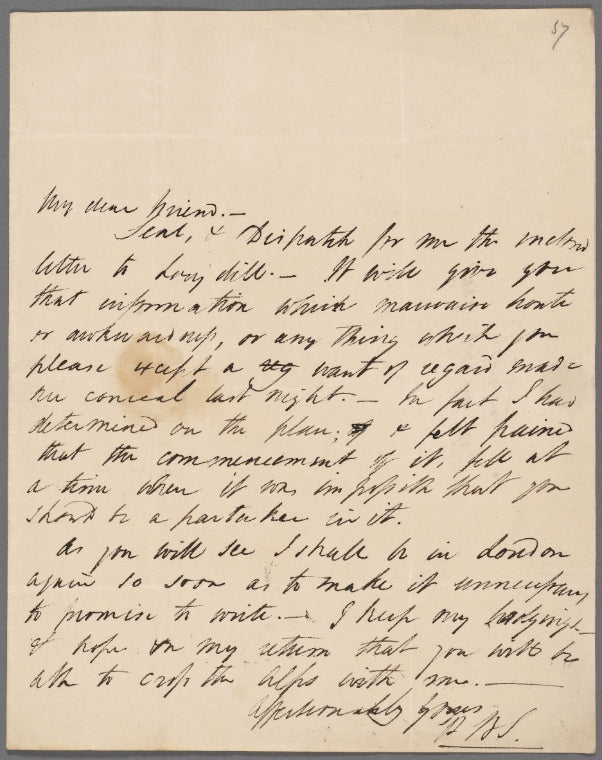 57
My dear Friend.—
Seal, & Dispatch for me the inclosed
letter to Longdill.— It will give you
that information which mauvaise honte
or awkwardness, or any thing which you
please except a want of regard made
me conceal last night.— In fact I had
determined on the plan; & felt pained
that the commencement of it, fell at
a time when it was impossible that you
should be a partaker in it.
As you will see I shall be in London
again so soon as to make it unnecessary
to promise to write.— I keep my lodgings
& hope on my return that you will be
able to cross the Alps with me.—
Affectionately yours
P B S.